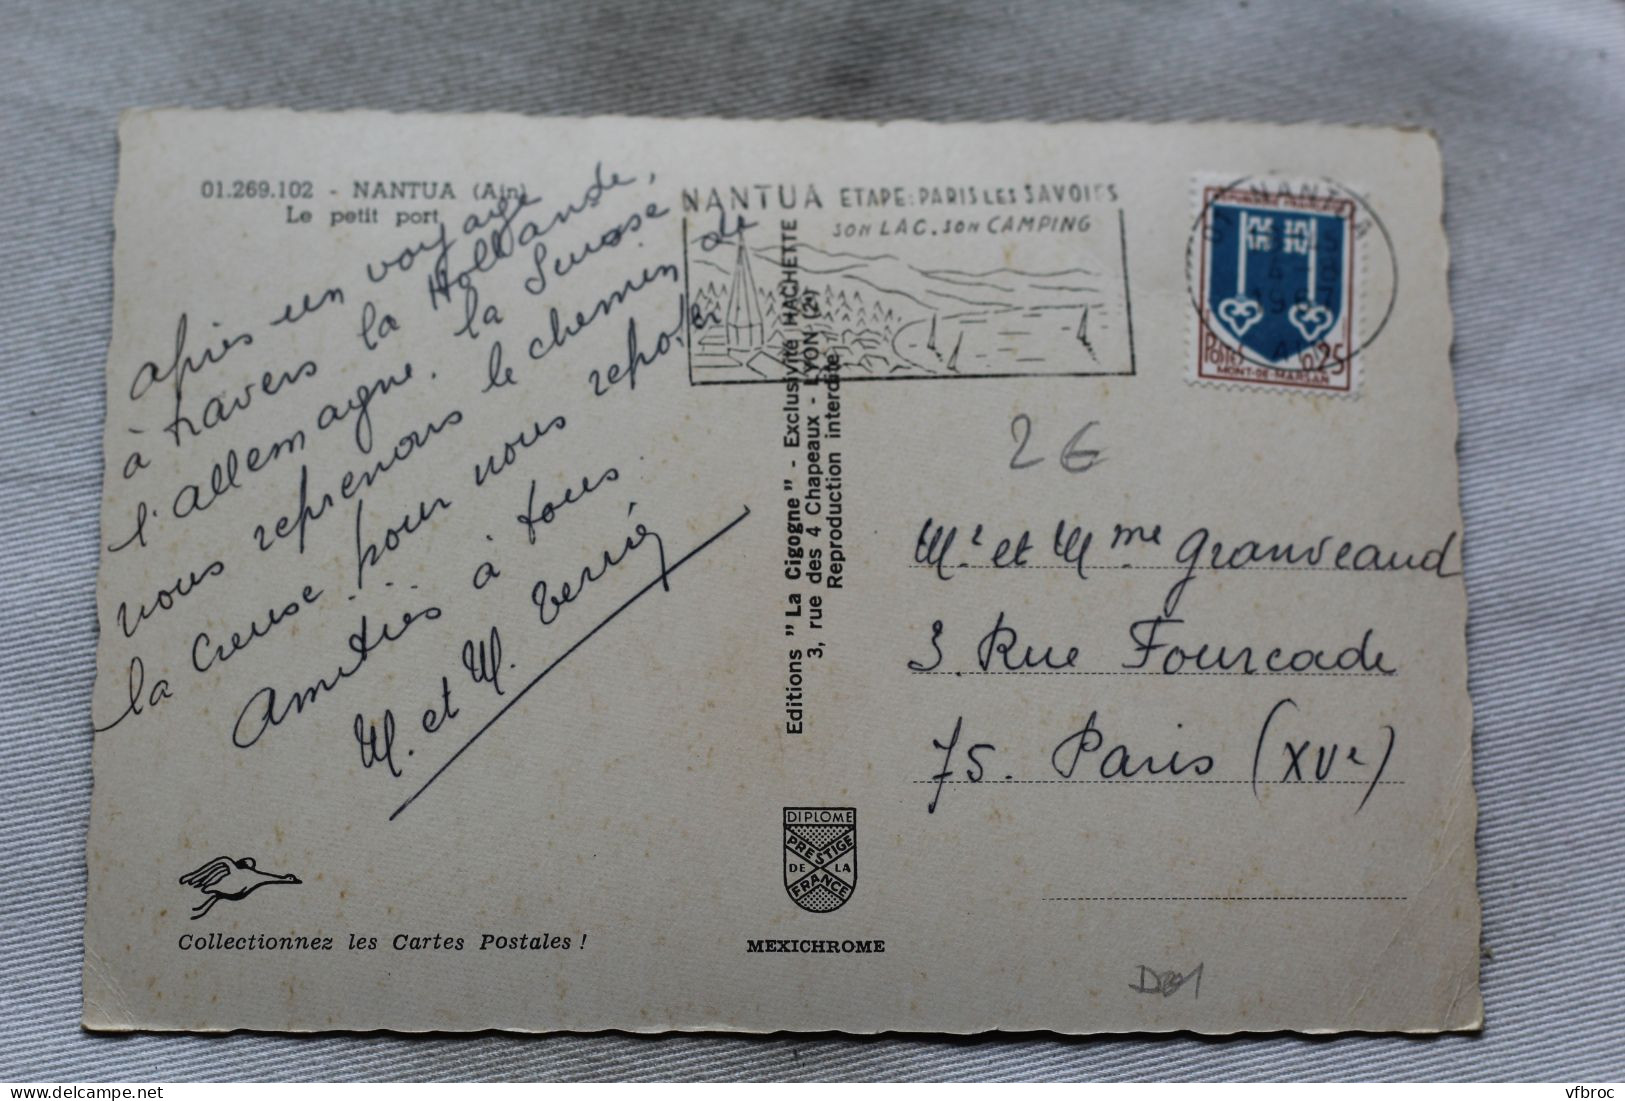 01.269.102 - NANTUA (Ain)
Le petit port
après un voyage
à travers la Hollande,
l'allemagne. la Suisse
nous reprenons le chemin de
la Creuse. pour nous reposer
Amitiés à tous.
M. et M. Verrié
NANTUA ETAPE: PARIS LES SAVOIES
SON LAC. SON CAMPING
Editions "La Cigogne" - Exclusivité HACHETTE
3, rue des 4 Chapeaux - LYON (2e)
Reproduction interdite
NANTUA
AIN
REPUBLIQUE FRANCAISE
POSTES
0,25
MONT-DE-MARSAN
2€
Mr et Mme Granveaud
3 Rue Fourcade
75. Paris (XVe)
DIPLOME
PRESTIGE
DE LA
FRANCE
MEXICHROME
Collectionnez les Cartes Postales !
D01
vfbroc